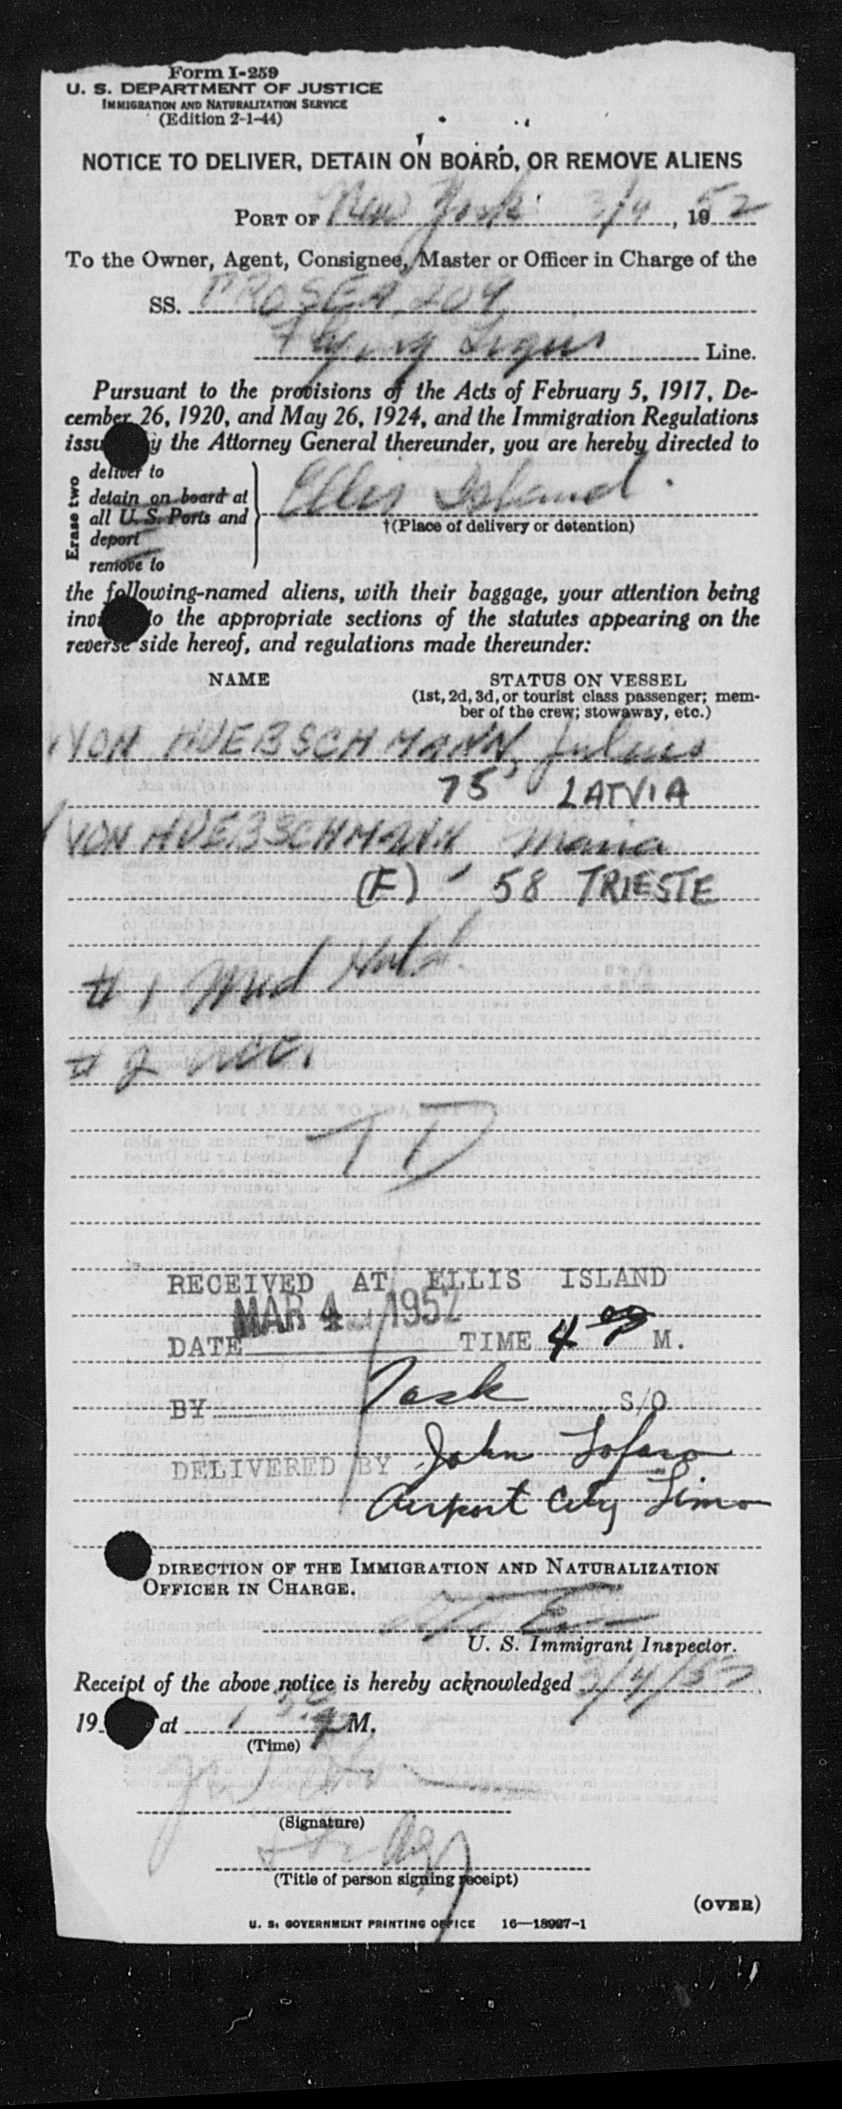 Form I-259
U. S. DEPARTMENT OF JUSTICE
IMMIGRATION AND NATURALIZATION SERVICE
(Edition 2-1-44)
NOTICE TO DELIVER, DETAIN ON BOARD, OR REMOVE ALIENS
PORT OF New York 3/4, 1952
To the Owner, Agent, Consignee, Master or Officer in Charge of the
SS. PROSEA 204
Flying Tigers Line.
Pursuant to the provisions of the Acts of February 5, 1917, De-
cember 26, 1920, and May 26, 1924, and the Immigration Regulations
issu y the Attorney General thereunder, you are hereby directed to
Erase two
deliver to
detain on board at
all U. S. Ports and
deport
remove to
Ellis Island.
†(Place of delivery or detention)
the following-named aliens, with their baggage, your attention being
invi to the appropriate sections of the statutes appearing on the
reverse side hereof, and regulations made thereunder:
NAME STATUS ON VESSEL
(1st, 2d, 3d, or tourist class passenger; mem-
ber of the crew; stowaway, etc.)
VON HUEBSCHMANN, Julius
75 LATVIA
VON HUEBSCHMANN Maria
(F) - 58 TRIESTE
# 1 Med Hold.
# 2 Acc.
TD
RECEIVED AT ELLIS ISLAND
DATE MAR 4 1952 TIME 4 00 P M.
BY Task S/O
DELIVERED BY John Lofaro
Airport City Limo
DIRECTION OF THE IMMIGRATION AND NATURALIZATION
OFFICER IN CHARGE.
U. S. Immigrant Inspector.
Receipt of the above notice is hereby acknowledged 3/4/52
19 at 1 30 P M.
(Time)
(Signature)
(Title of person signing receipt)
(OVER)
U. S. GOVERNMENT PRINTING OFFICE 16—18987-1